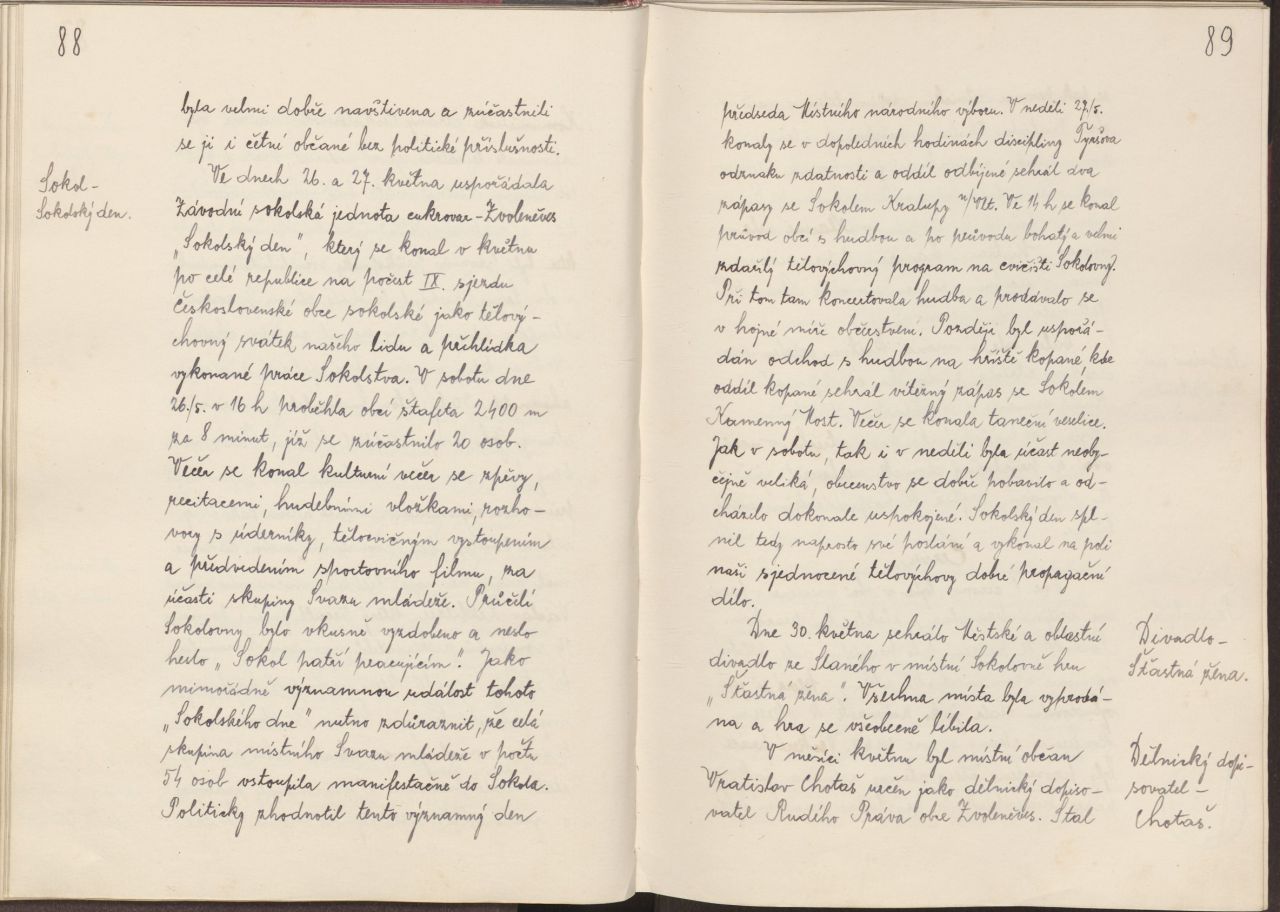 88
byla velmi dobře navštívena a zúčastnili
se jí i četní občané bez politické příslušnosti.
Sokol-
Sokolský den.
Ve dnech 26. a 27. května uspořádala
Závodní sokolská jednota cukrovar-Zvoleněves
„Sokolský den", který se konal v květnu
po celé republice na počest IX. sjezdu
Československé obce sokolské jako tělový-
chovný svátek našeho lidu a přehlídka
vykonané práce Sokolstva. V sobotu dne
26./5. v 16 h proběhla obcí štafeta 2400 m
za 8 minut, jíž se zúčastnilo 20 osob.
Večer se konal kulturní večer se zpěvy,
recitacemi, hudebními vložkami, rozho-
vory s úderníky, tělocvičným vystoupením
a předvedením sportovního filmu, za
účasti skupiny Svazu mládeže. Průčelí
Sokolovny bylo vkusně vyzdobeno a neslo
heslo „Sokol patří pracujícím". Jako
mimořádně významnou událost tohoto
„Sokolského dne" nutno zdůraznit, že celá
skupina místního Svazu mládeže v počtu
54 osob vstoupila manifestačně do Sokola.
Politicky zhodnotil tento významný den
89
předseda Místního národního výboru. V neděli 27./5.
konaly se v dopoledních hodinách disciplíny Tyršova
odznaku zdatnosti a oddíl odbíjené sehrál dva
zápasy se Sokolem Kralupy n/Vlt. Ve 14 h se konal
průvod obcí s hudbou a po průvodu bohatý a velmi
zdařilý tělovýchovný program na cvičišti Sokolovny.
Při tom tam koncertovala hudba a prodávalo se
v hojné míře občerstvení. Později byl uspořá-
dán odchod s hudbou na hřiště kopané, kde
oddíl kopané sehrál vítězný zápas se Sokolem
Kamenný Most. Večer se konala taneční veselice.
Jak v sobotu, tak i v neděli byla účast neoby-
čejně veliká, obecenstvo se dobře pobavilo a od-
cházelo dokonale uspokojené. Sokolský den spl-
nil tedy naprosto své poslání a vykonal na poli
naší sjednocené tělovýchovy dobré propagační
dílo.
Dne 30. května sehrálo Městské a oblastní
divadlo ze Slaného v místní Sokolovně hru
„Šťastná žena". Všechna místa byla vyprodá-
na a hra se všeobecně líbila.
Divadlo-
Šťastná žena.
V měsíci květnu byl místní občan
Vratislav Chotaš určen jako dělnický dopiso-
vatel Rudého Práva obce Zvoleněves. Stal
Dělnický dopi-
sovatel-
Chotaš.